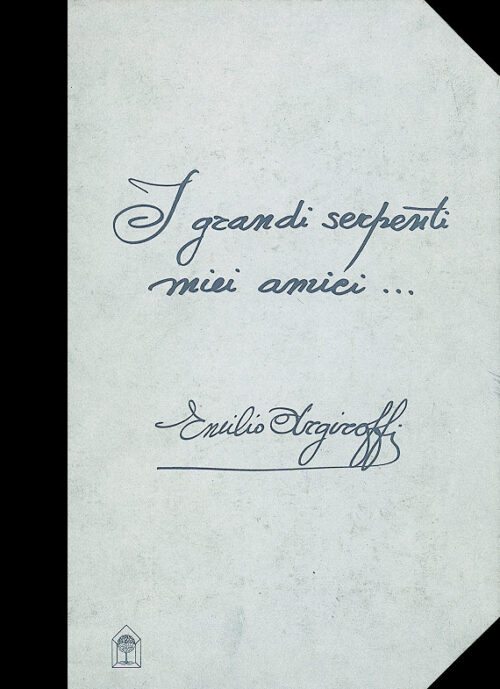 I grandi serpenti
miei amici ...
Emilio Argiroffi